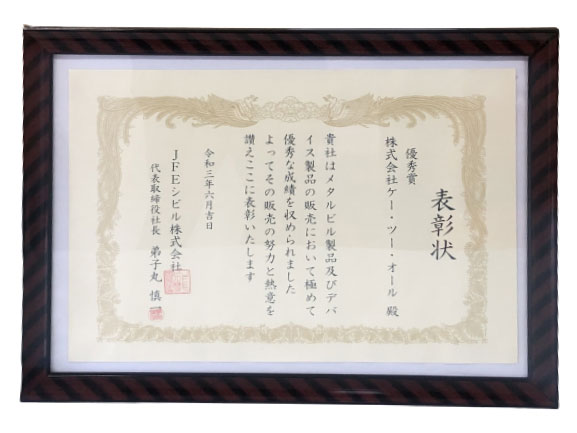 表彰状
優秀賞
株式会社ケー・ツー・オール 殿
貴社はメタルビル製品及びデバ
イス製品の販売において極めて
優秀な成績を収められました
よってその販売の努力と熱意を
讃えここに表彰いたします
令和三年六月吉日
JFEシビル株式会社
代表取締役社長 弟子丸 慎